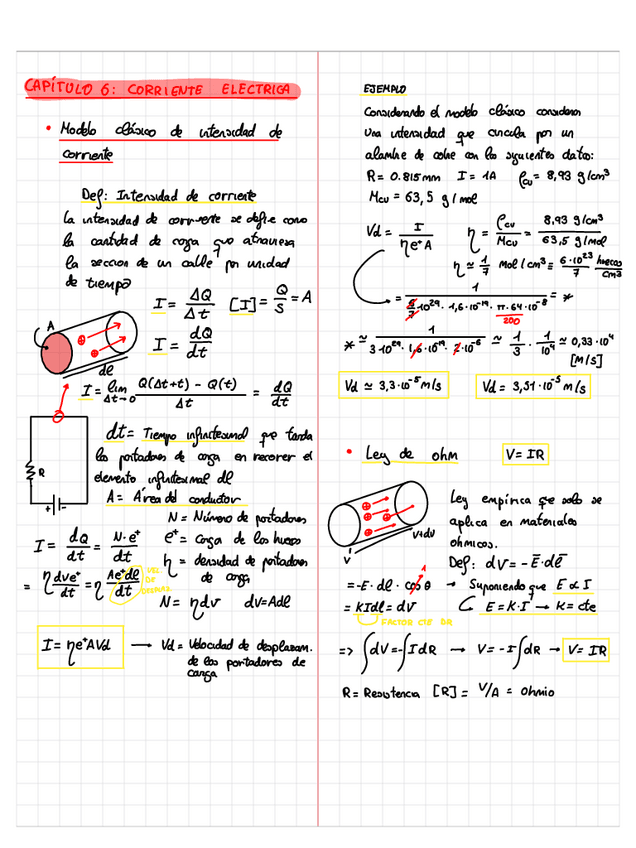 CAPÍTULO 6: CORRIENTE ELECTRICA
• Modelo clásico de intensidad de
corriente
Def: Intensidad de corriente
la intensidad de corriente se define como
la cantidad de carga que atraviesa
la seccion de un calle por unidad
de tiempo
I = ΔQ/Δt [I] = Q/S = A
I = dQ/dt
A
dl
I = lim Δt→0 Q(Δt+t) - Q(t)/Δt = dQ/dt
R
+ -
dt = Tiempo infinitesimal que tarda
los portadores de carga en recorrer el
elemento infinitesimal dl
A = Área del conductor
N = Número de portadores
e⁺ = carga de los huecos
η = densidad de portadores
de carga
I = dQ/dt = N·e⁺/dt
= η dve⁺/dt = η Ae⁺dl/dt
VEL DE
N = η dv dV = Adl
I = ηe⁺AVd → Vd = Velocidad de desplazam.
de los portadores de
carga
EJEMPLO
Considerando el modelo clásico considerar
una intensidad que circula por un
alambre de cobre con los siguientes datos:
R = 0.815mm I = 1A ρcu = 8,93 g/cm³
Mcu = 63,5 g/mol
Vd = I/ηe⁺A η = ρcu/Mcu = 8,93 g/cm³/63,5 g/mol
η ≃ 1/7 mol/cm³ ≡ 6·10²³/7 huecos/cm³
= 1/(6/7·10²⁹·1,6·10⁻¹⁹·π·64·10⁻⁸) = *
200
* ≃ 1/(3·10²⁹·1,6·10⁻¹⁹·2·10⁻⁶) ≃ 1/3 · 1/10⁴ ≃ 0,33·10⁴
[M/S]
Vd ≃ 3,3·10⁻⁵ m/s Vd = 3,51·10⁻⁵ m/s
• Ley de ohm V = IR
V V+dV
Ley empírica que solo se
aplica en materiales
ohmicos.
Def: dV = -E·dl
= -E·dl·cosθ → Suponiendo que E α I
1
= KIdl = dV E = K·I → K = cte
FACTOR CTE DR
=> ∫dV = -∫IdR → V = -I∫dR → V = IR
R = Resistencia [R] = V/A = Ohmio